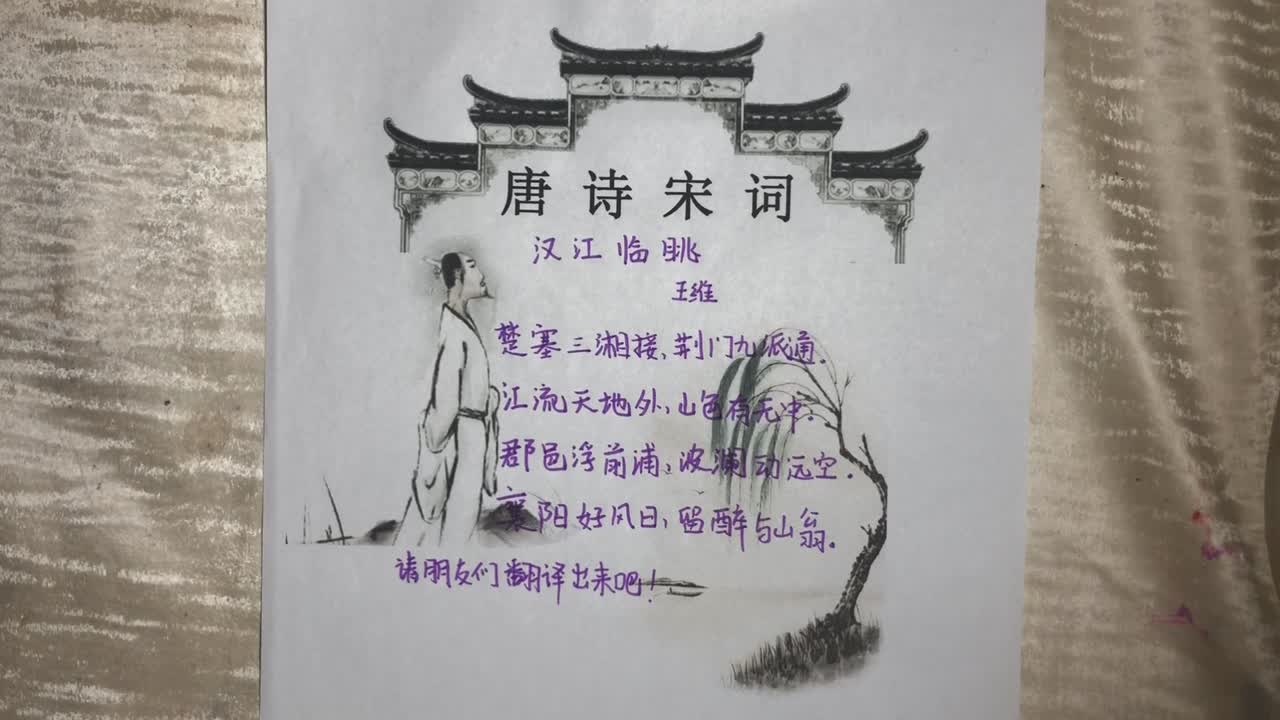 唐诗宋词
汉江临眺
王维
楚塞三湘接,荆门九派通.
江流天地外,山色有无中.
郡邑浮前浦,波澜动远空.
襄阳好风日,留醉与山翁.
请朋友们翻译出来吧!